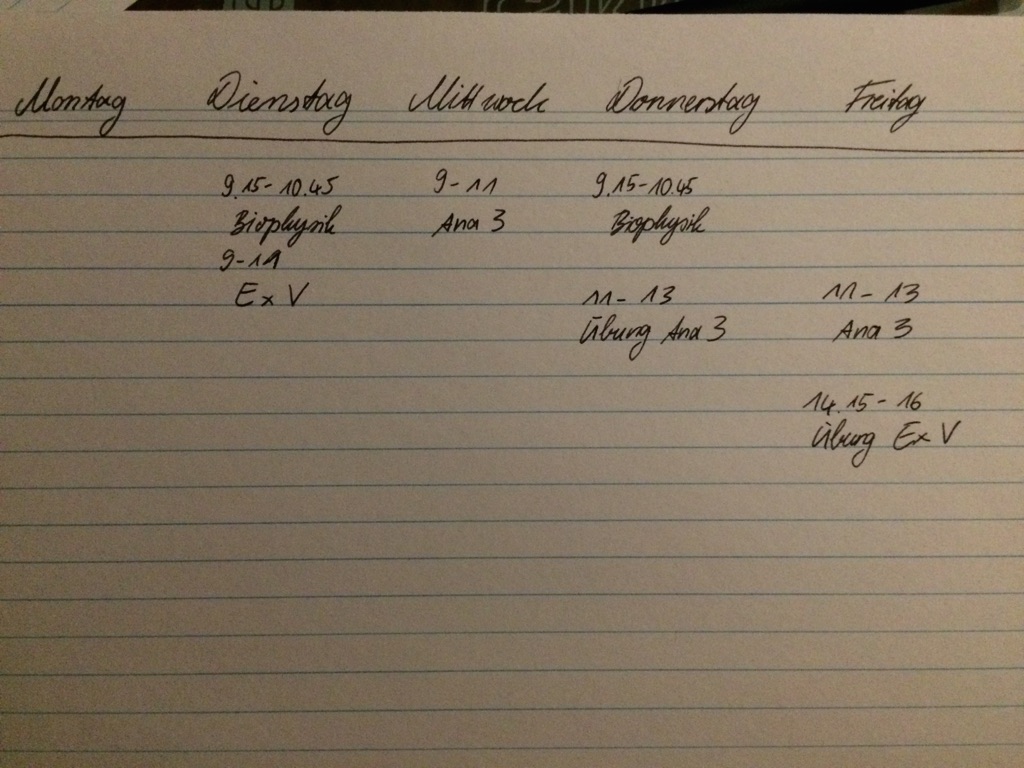 Montag Dienstag Mittwoch Donnerstag Freitag
9.15-10.45 9-11 9.15-10.45
Biophysik Ana 3 Biophysik
9-11
Ex V 11-13 11-13
Übung Ana 3 Ana 3
14.15-16
Übung Ex V